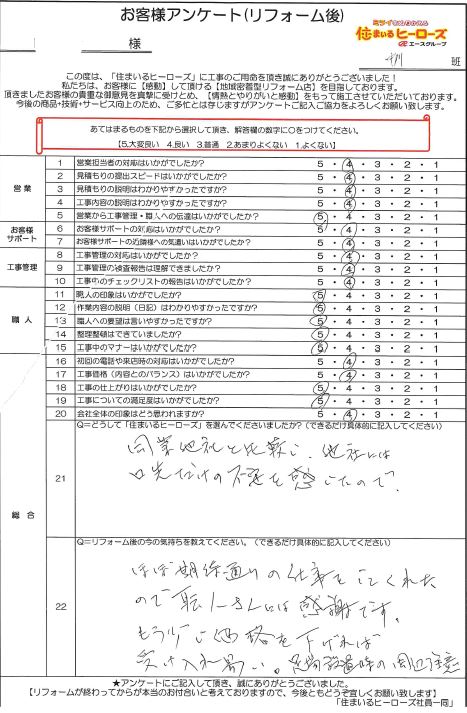 お客様アンケート(リフォーム後)
様
ミライをかなえる
住まいるヒーローズ
エースグループ
班
この度は、「住まいるヒーローズ」に工事のご用命を頂き誠にありがとうございました！
私たちは、お客様に【感動】して頂ける【地域密着型リフォーム店】を目指しております。
頂きましたお客様の貴重な御意見を真摯に受けとめ、【情熱とやりがいと感動】をもって施工させていただいております。
今後の商品・技術・サービス向上のため、ご多忙とは存じますがアンケートご記入ご協力をよろしくお願い致します。
あてはまるものを下記から選択して頂き、解答欄の数字に○をつけてください。
【5.大変良い　4.良い　3.普通　2.あまりよくない　1.よくない】
営業
1 営業担当者の対応はいかがでしたか? 5・4・3・2・1
2 見積もりの提出スピードはいかがでしたか? 5・4・3・2・1
3 見積もりの説明はわかりやすかったですか? 5・4・3・2・1
4 工事内容の説明はわかりやすかったですか? 5・4・3・2・1
5 営業から工事管理・職人への伝達はいかがでしたか? 5・4・3・2・1
お客様
サポート
6 お客様サポートの対応はいかがでしたか? 5・4・3・2・1
7 お客様サポートの近隣様への気遣いはいかがでしたか? 5・4・3・2・1
工事管理
8 工事管理の対応はいかがでしたか? 5・4・3・2・1
9 工事管理の検査報告は理解できましたか? 5・4・3・2・1
10 工事中のチェックリストの報告はいかがでしたか? 5・4・3・2・1
職人
11 職人の印象はいかがでしたか? 5・4・3・2・1
12 作業内容の説明(日記)はわかりやすかったですか? 5・4・3・2・1
13 職人への要望は言いやすかったですか? 5・4・3・2・1
14 整理整頓はできていましたか? 5・4・3・2・1
15 工事中のマナーはいかがでしたか? 5・4・3・2・1
総合
16 初回の電話や来店時の対応はいかがでしたか? 5・4・3・2・1
17 工事価格(内容とのバランス)はいかがでしたか? 5・4・3・2・1
18 工事の仕上がりはいかがでしたか? 5・4・3・2・1
19 工事についての満足度はいかがでしたか? 5・4・3・2・1
20 会社全体の印象はどう思われますか? 5・4・3・2・1
21
Q=どうして「住まいるヒーローズ」を選んでくださいましたか?(できるだけ具体的に記入してください)
同業他社と比較し、他社には
口先だけの不安を感じたので。
22
Q=リフォーム後の今の気持ちを教えてください。(できるだけ具体的に記入してください)
ほぼ期待通りの仕事をしてくれた
ので 職人さんには感謝です。
もう少し価格を下げれば
受け入れ易い。 足場設置時の周辺注意
★アンケートにご記入して頂き、誠にありがとうございました。
【リフォームが終わってからが本当のお付合いと考えておりますので、今後ともどうぞ宜しくお願い致します】
「住まいるヒーローズ社員一同」